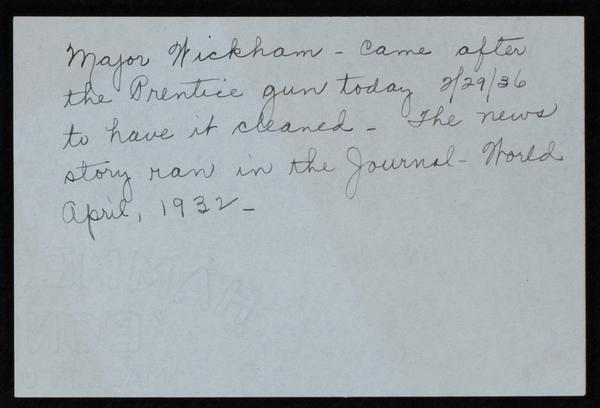 Major Wickham - Came after
the Prentice gun today 2/29/36
to have it cleaned - The news
story ran in the Journal-World
April, 1932 -